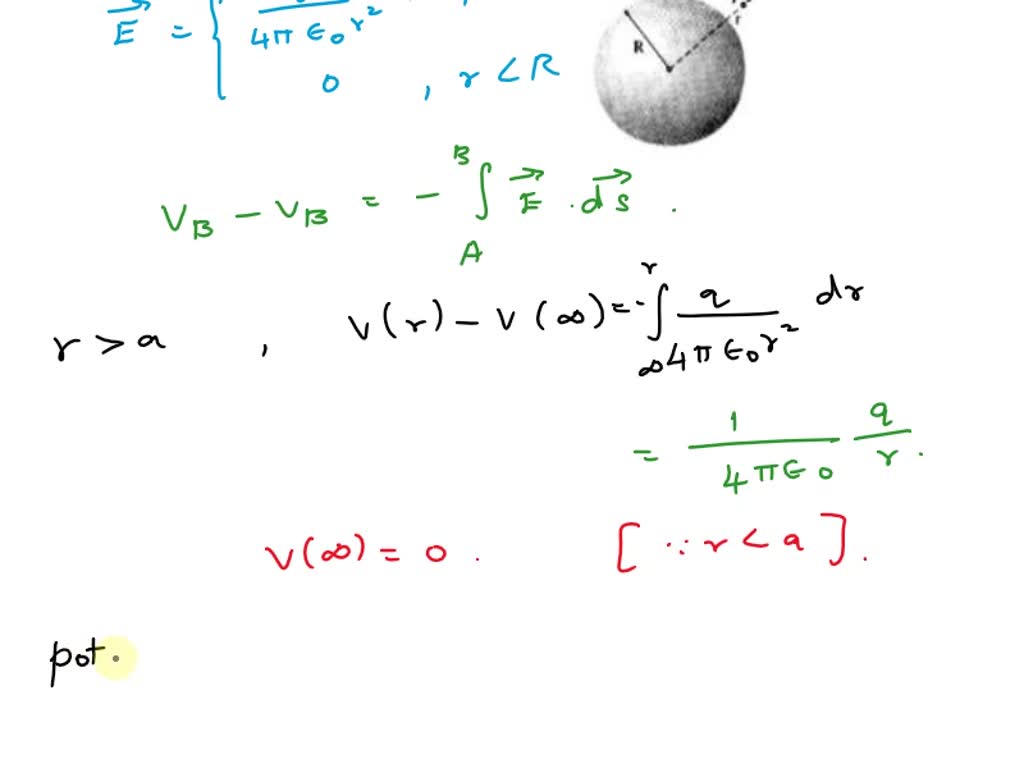 E⃗ = { / 4π ϵ₀ r²
0 , r < R
R
r
V_B − V_B = − ∫_A^B E⃗ . ds⃗ .
r > a , V(r) − V(∞) = - ∫_∞^r q / 4π ϵ₀ r² dr
= 1 / 4π ϵ₀ q / r .
V(∞) = 0 . [ ∵ r < a ] .
pot.